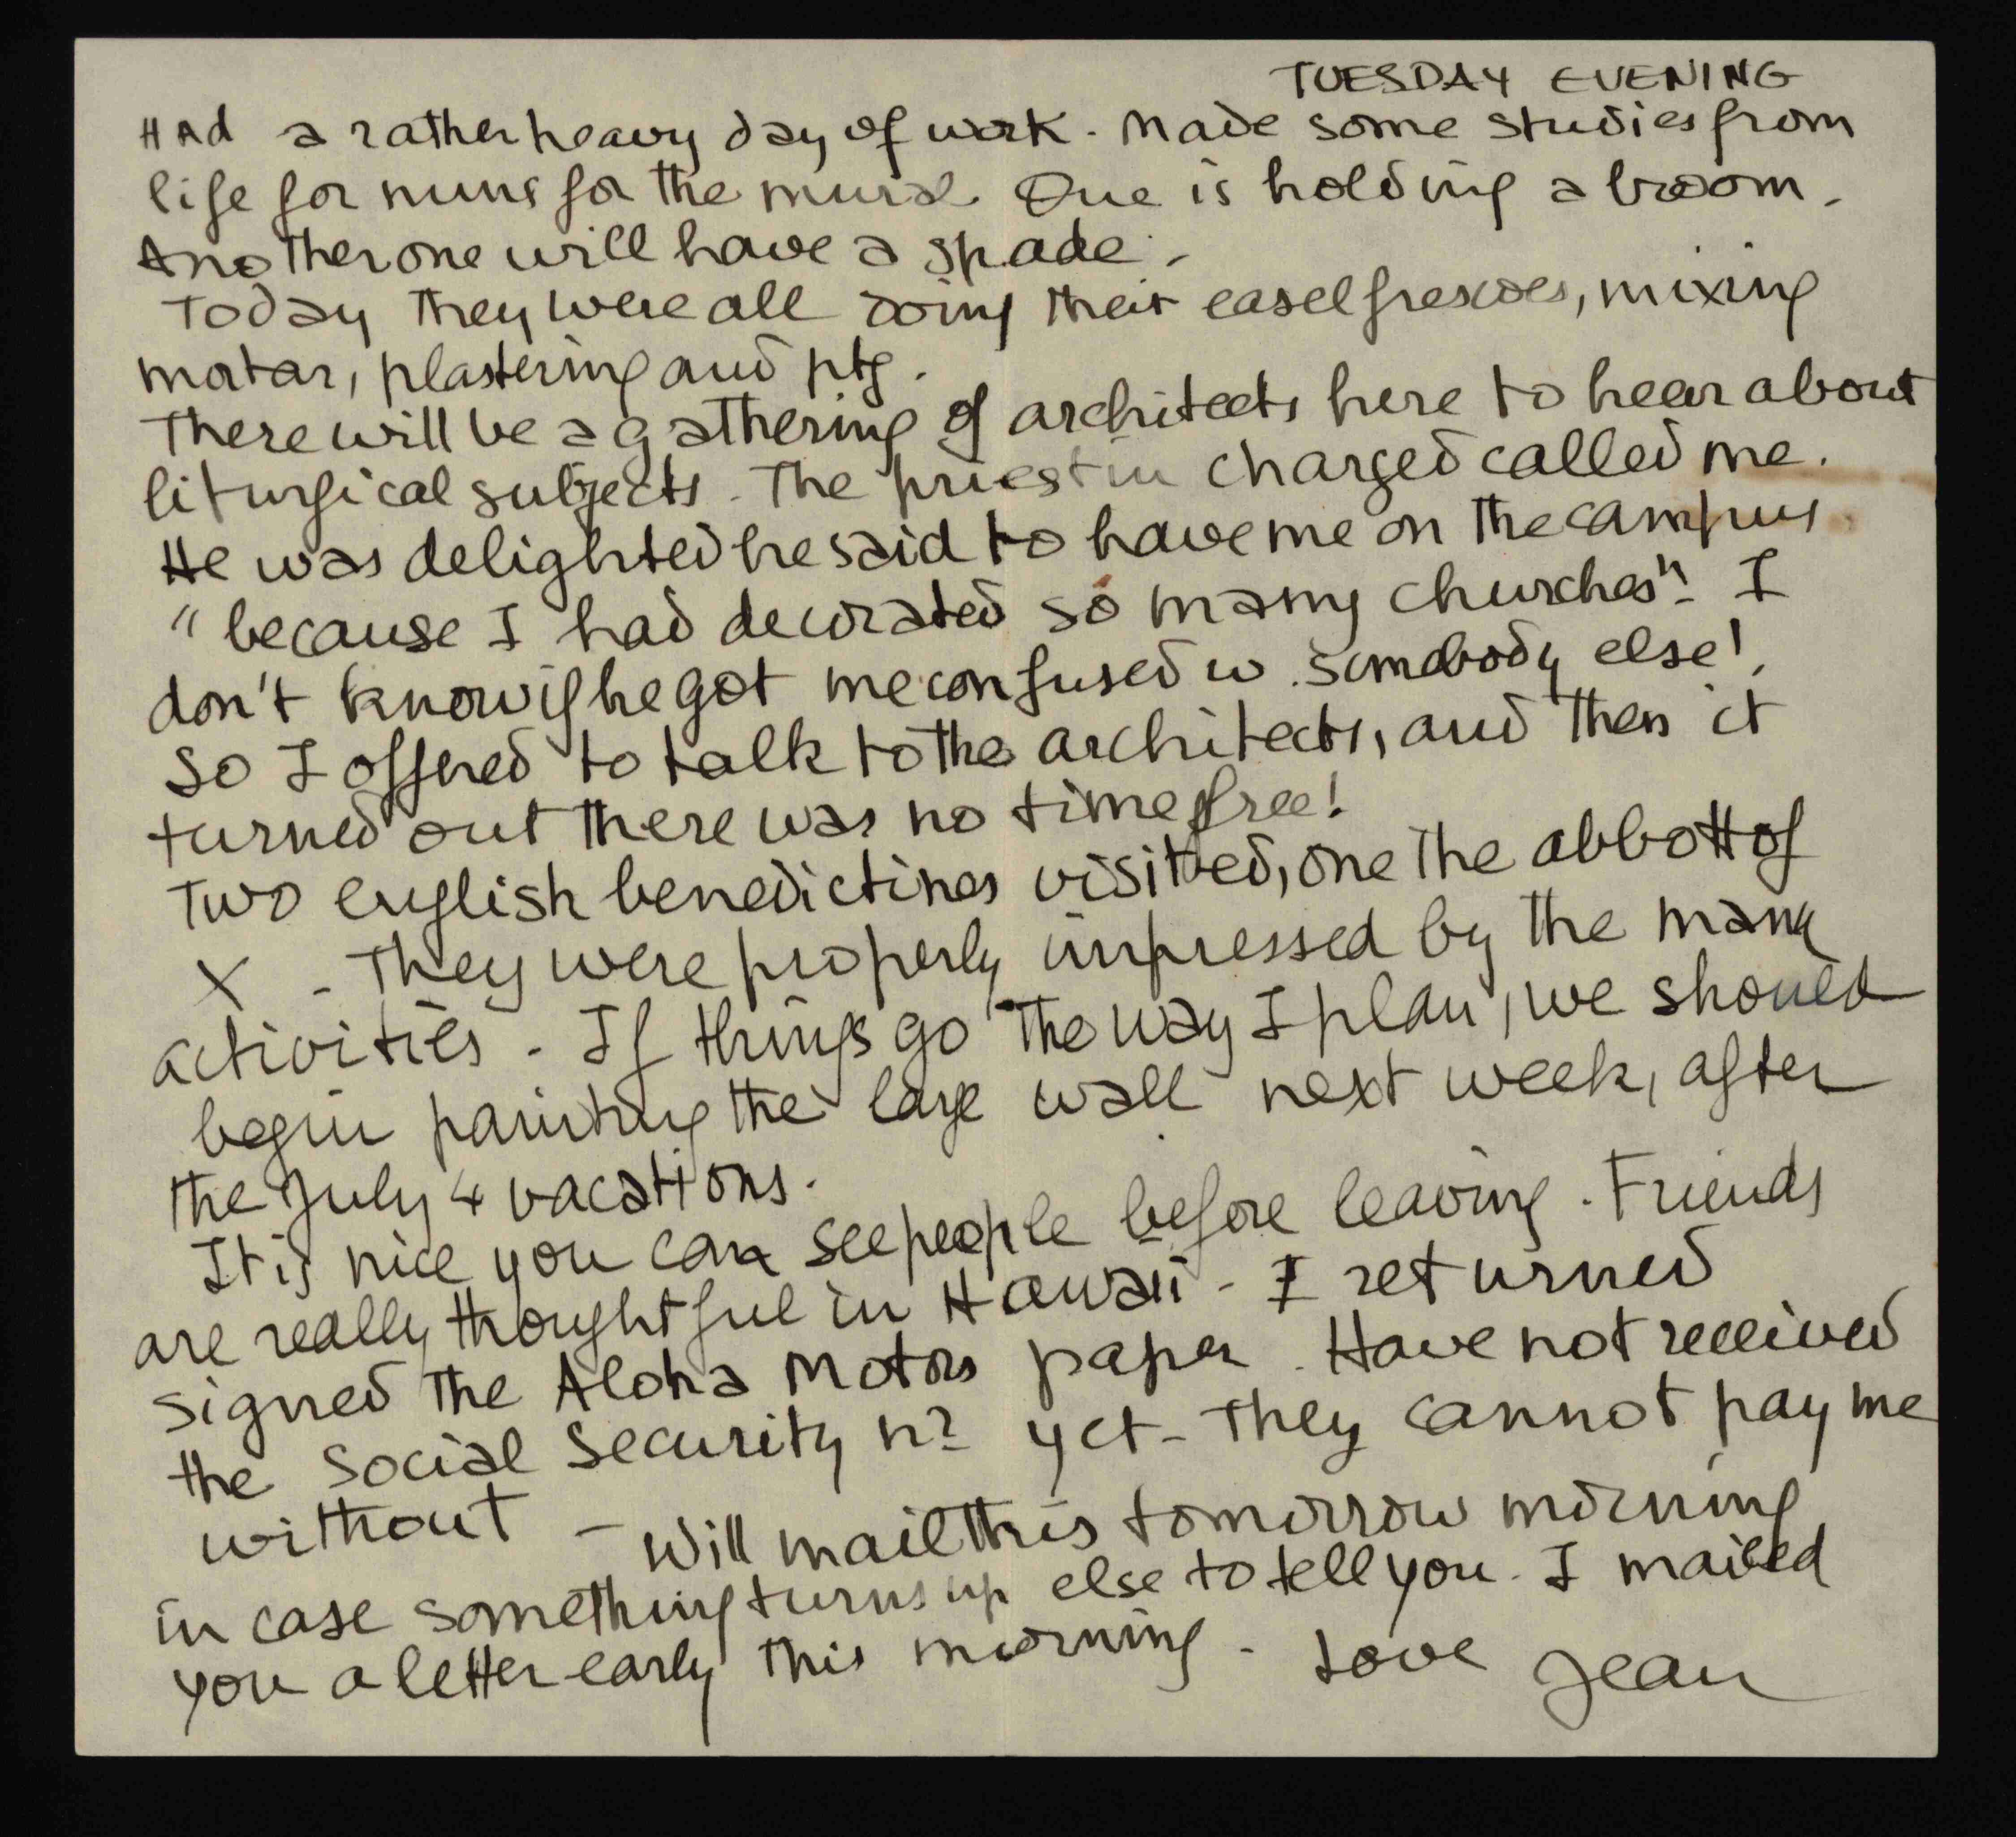 TUESDAY EVENING
Had a rather heavy day of work. Made some studies from
life for nuns for the mural. One is holding a broom.
Another one will have a spade.
Today they were all doing their easel frescoes, mixing
mortar, plastering and ptg.
There will be a gathering of architects here to hear about
liturgical subjects. The priest in charged called me.
He was delighted he said to have me on the campus
"because I had decorated so many churches"! I
don't know if he got me confused w. somebody else!
So I offered to talk to the architects, and then it
turned out there was no time free!
Two english benedictines visited, one the abbott of
X - They were properly impressed by the many
activities - If things go the way I plan, we should
begin painting the large wall next week, after
the July 4 vacations.
It is nice you can see people before leaving. Friends
are really thoughtful in Hawaii - I returned
signed the Aloha Motors paper. Have not received
the Social Security nº yet - They cannot pay me
without - Will mail this tomorrow morning
in case something turns up else to tell you. I mailed
you a letter early this morning - Love Jean